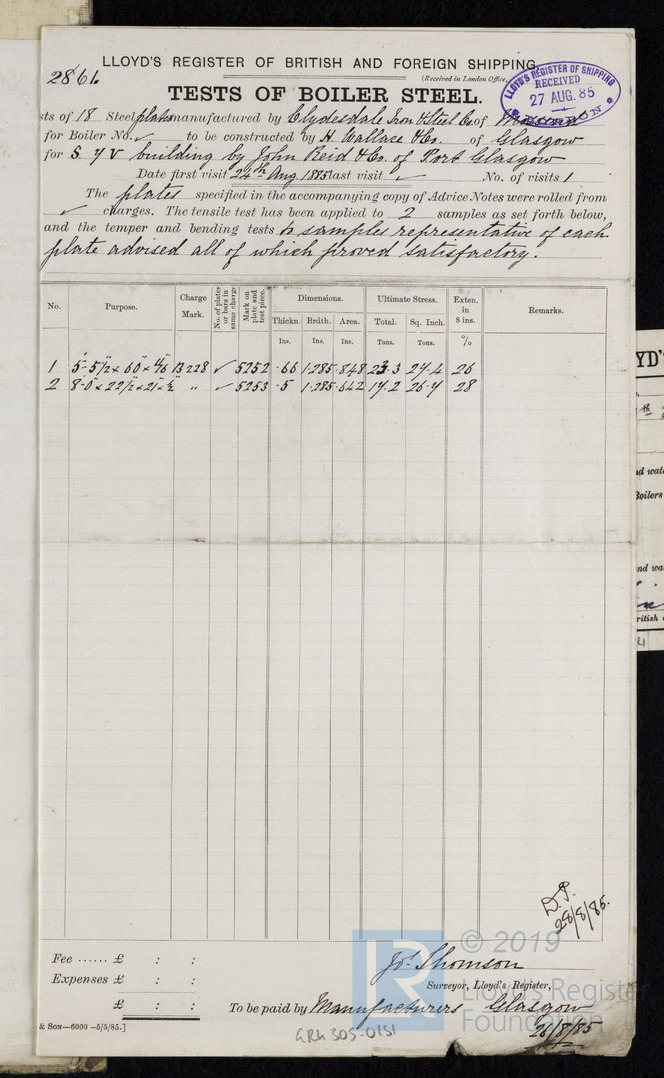 LLOYD'S REGISTER OF BRITISH AND FOREIGN SHIPPING.
2861.
(Received in London Office,
LLOYD'S REGISTER OF SHIPPING
RECEIVED
27 AUG. 85
LONDON
TESTS OF BOILER STEEL.
sts of 18 Steel plates manufactured by Clydesdale Iron & Steel Co. of Mossend
for Boiler No. ✓ to be constructed by H. Wallace & Co. of Glasgow
for S. Y V building by John Reid & Co. of Port Glasgow
Date first visit 24th Aug 1885 last visit ✓ No. of visits 1
The plates specified in the accompanying copy of Advice Notes were rolled from
✓ charges. The tensile test has been applied to 2 samples as set forth below,
and the temper and bending tests to samples representative of each
plate advised all of which proved satisfactory.
No. Purpose. Charge Mark. No. of plates or bars in same charge Mark on plate and test piece. Dimensions. Ultimate Stress. Exten. in 8 ins. Remarks.
Thickn. Brdth. Area. Total. Sq. Inch.
Ins. Ins. Ins. Tons. Tons. %
1 5-5½ × 60 × 4/6 13228 ✓ 5252 .66 1.285 .848 23.3 27.4 26
2 8-0 × 22½ × 21 × ½ " ✓ 5253 .5 1.285 .642 17.2 26.7 28
D.P.
28/8/85.
Fee ...... £ : :
Expenses £ : :
£ : :
Jos. Thomson
Surveyor, Lloyd's Register,
To be paid by Manufacturers Glasgow
26/8/85
& SON—6000—5/5/85.]
GRG 305-0151
© 2019
Lloyd's Register
Foundation